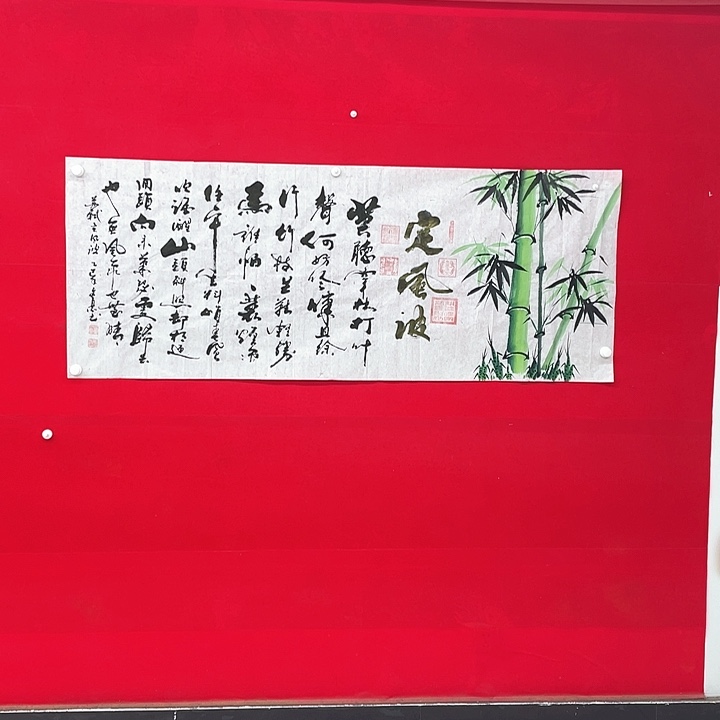 定風波
莫聽穿林打叶
聲何妨吟嘯且徐
行竹杖芒鞋輕勝
馬誰怕一蓑烟雨
任平生料峭春風
吹酒醒山頭斜照却相迎
回頭向來蕭瑟處歸去
也無風雨也無晴
蘇軾定風波